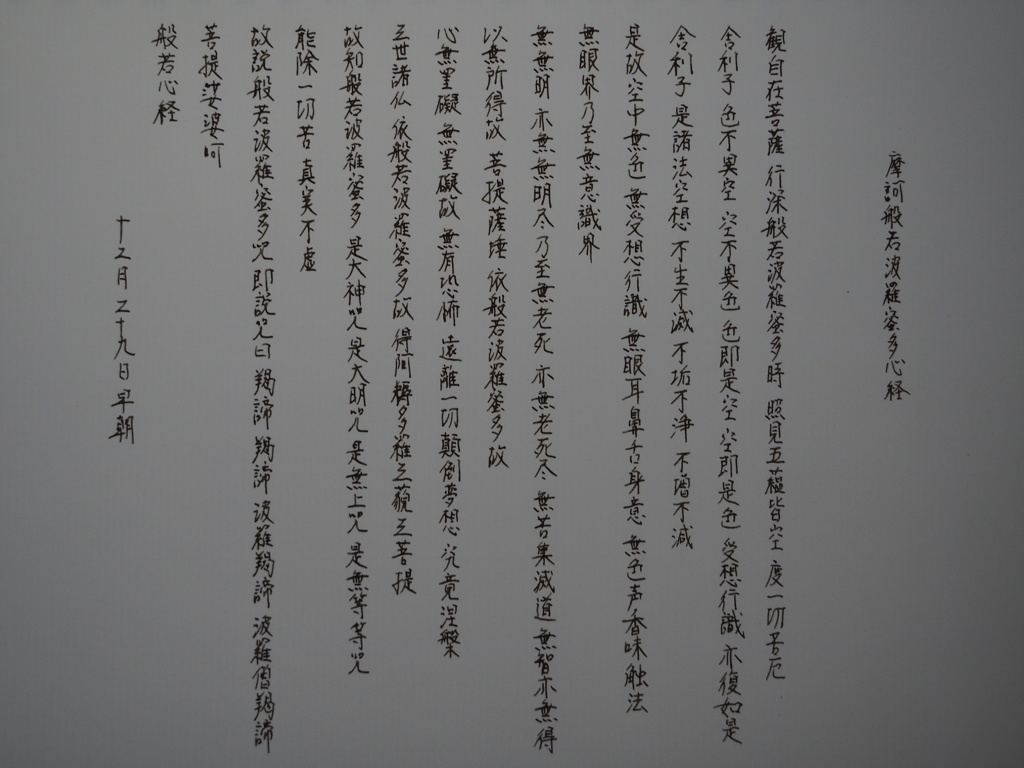 摩訶般若波羅蜜多心経
観自在菩薩 行深般若波羅蜜多時 照見五蘊皆空 度一切苦厄
舎利子 色不異空 空不異色 色即是空 空即是色 受想行識 亦復如是
舎利子 是諸法空想 不生不滅 不垢不浄 不増不減
是故空中無色 無受想行識 無眼耳鼻舌身意 無色声香味触法
無眼界乃至無意識界
無無明 亦無無明尽乃至無老死 亦無老死尽 無苦集滅道 無智亦無得
以無所得故 菩提薩埵 依般若波羅蜜多故
心無罣礙 無罣礙故 無有恐怖 遠離一切顛倒夢想 究竟涅槃
三世諸仏 依般若波羅蜜多故 得阿耨多羅三藐三菩提
故知般若波羅蜜多 是大神呪 是大明呪 是無上呪 是無等等呪
能除一切苦 真実不虚
故説般若波羅蜜多呪 即説呪曰 羯諦 羯諦 波羅羯諦 波羅僧羯諦
菩提娑婆訶
般若心経
十二月二十九日早朝